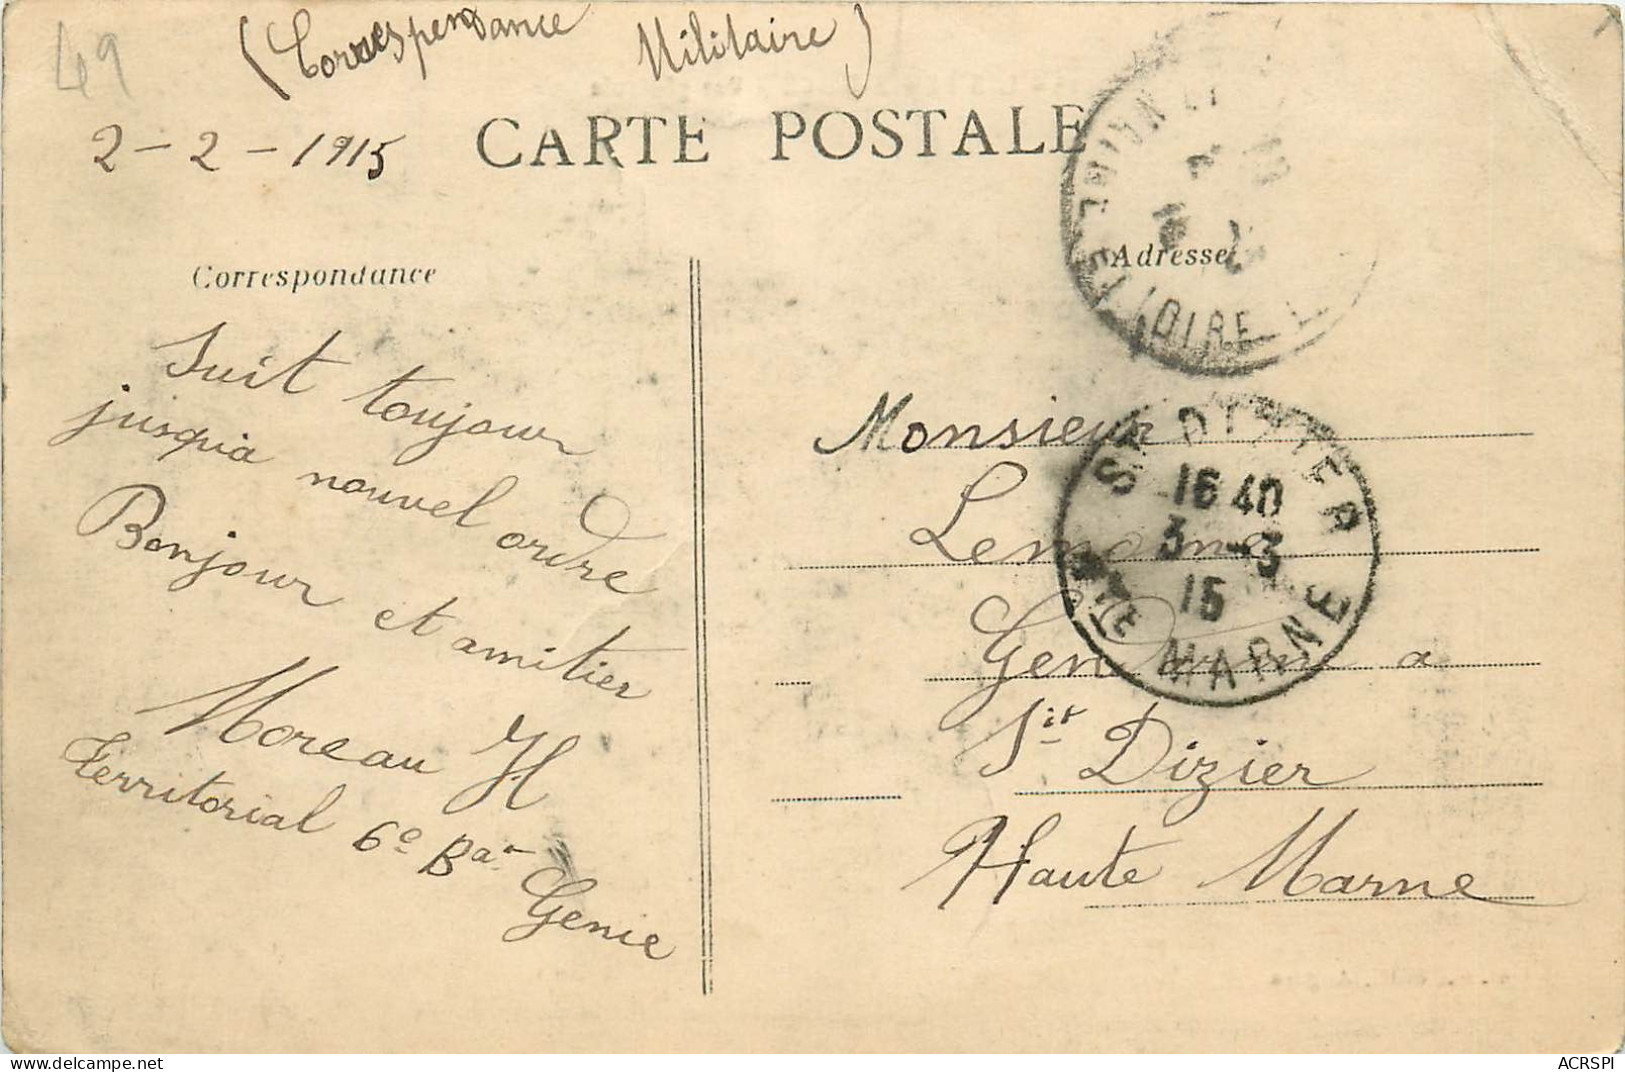 49
(Correspondance Militaire)
2-2-1915
CARTE POSTALE
Correspondance
Adresse
Suit toujour
jusqua nouvel ordre
Bonjour et amitier
Moreau H
Territorial 6e Bat
Genie
Monsieur
Lemoine
Gendarme a
St Dizier
Haute Marne
LOIRE
ST DIZIER
16 40
3 - 3
15
HTE MARNE
www.delcampe.net
ACRSPI